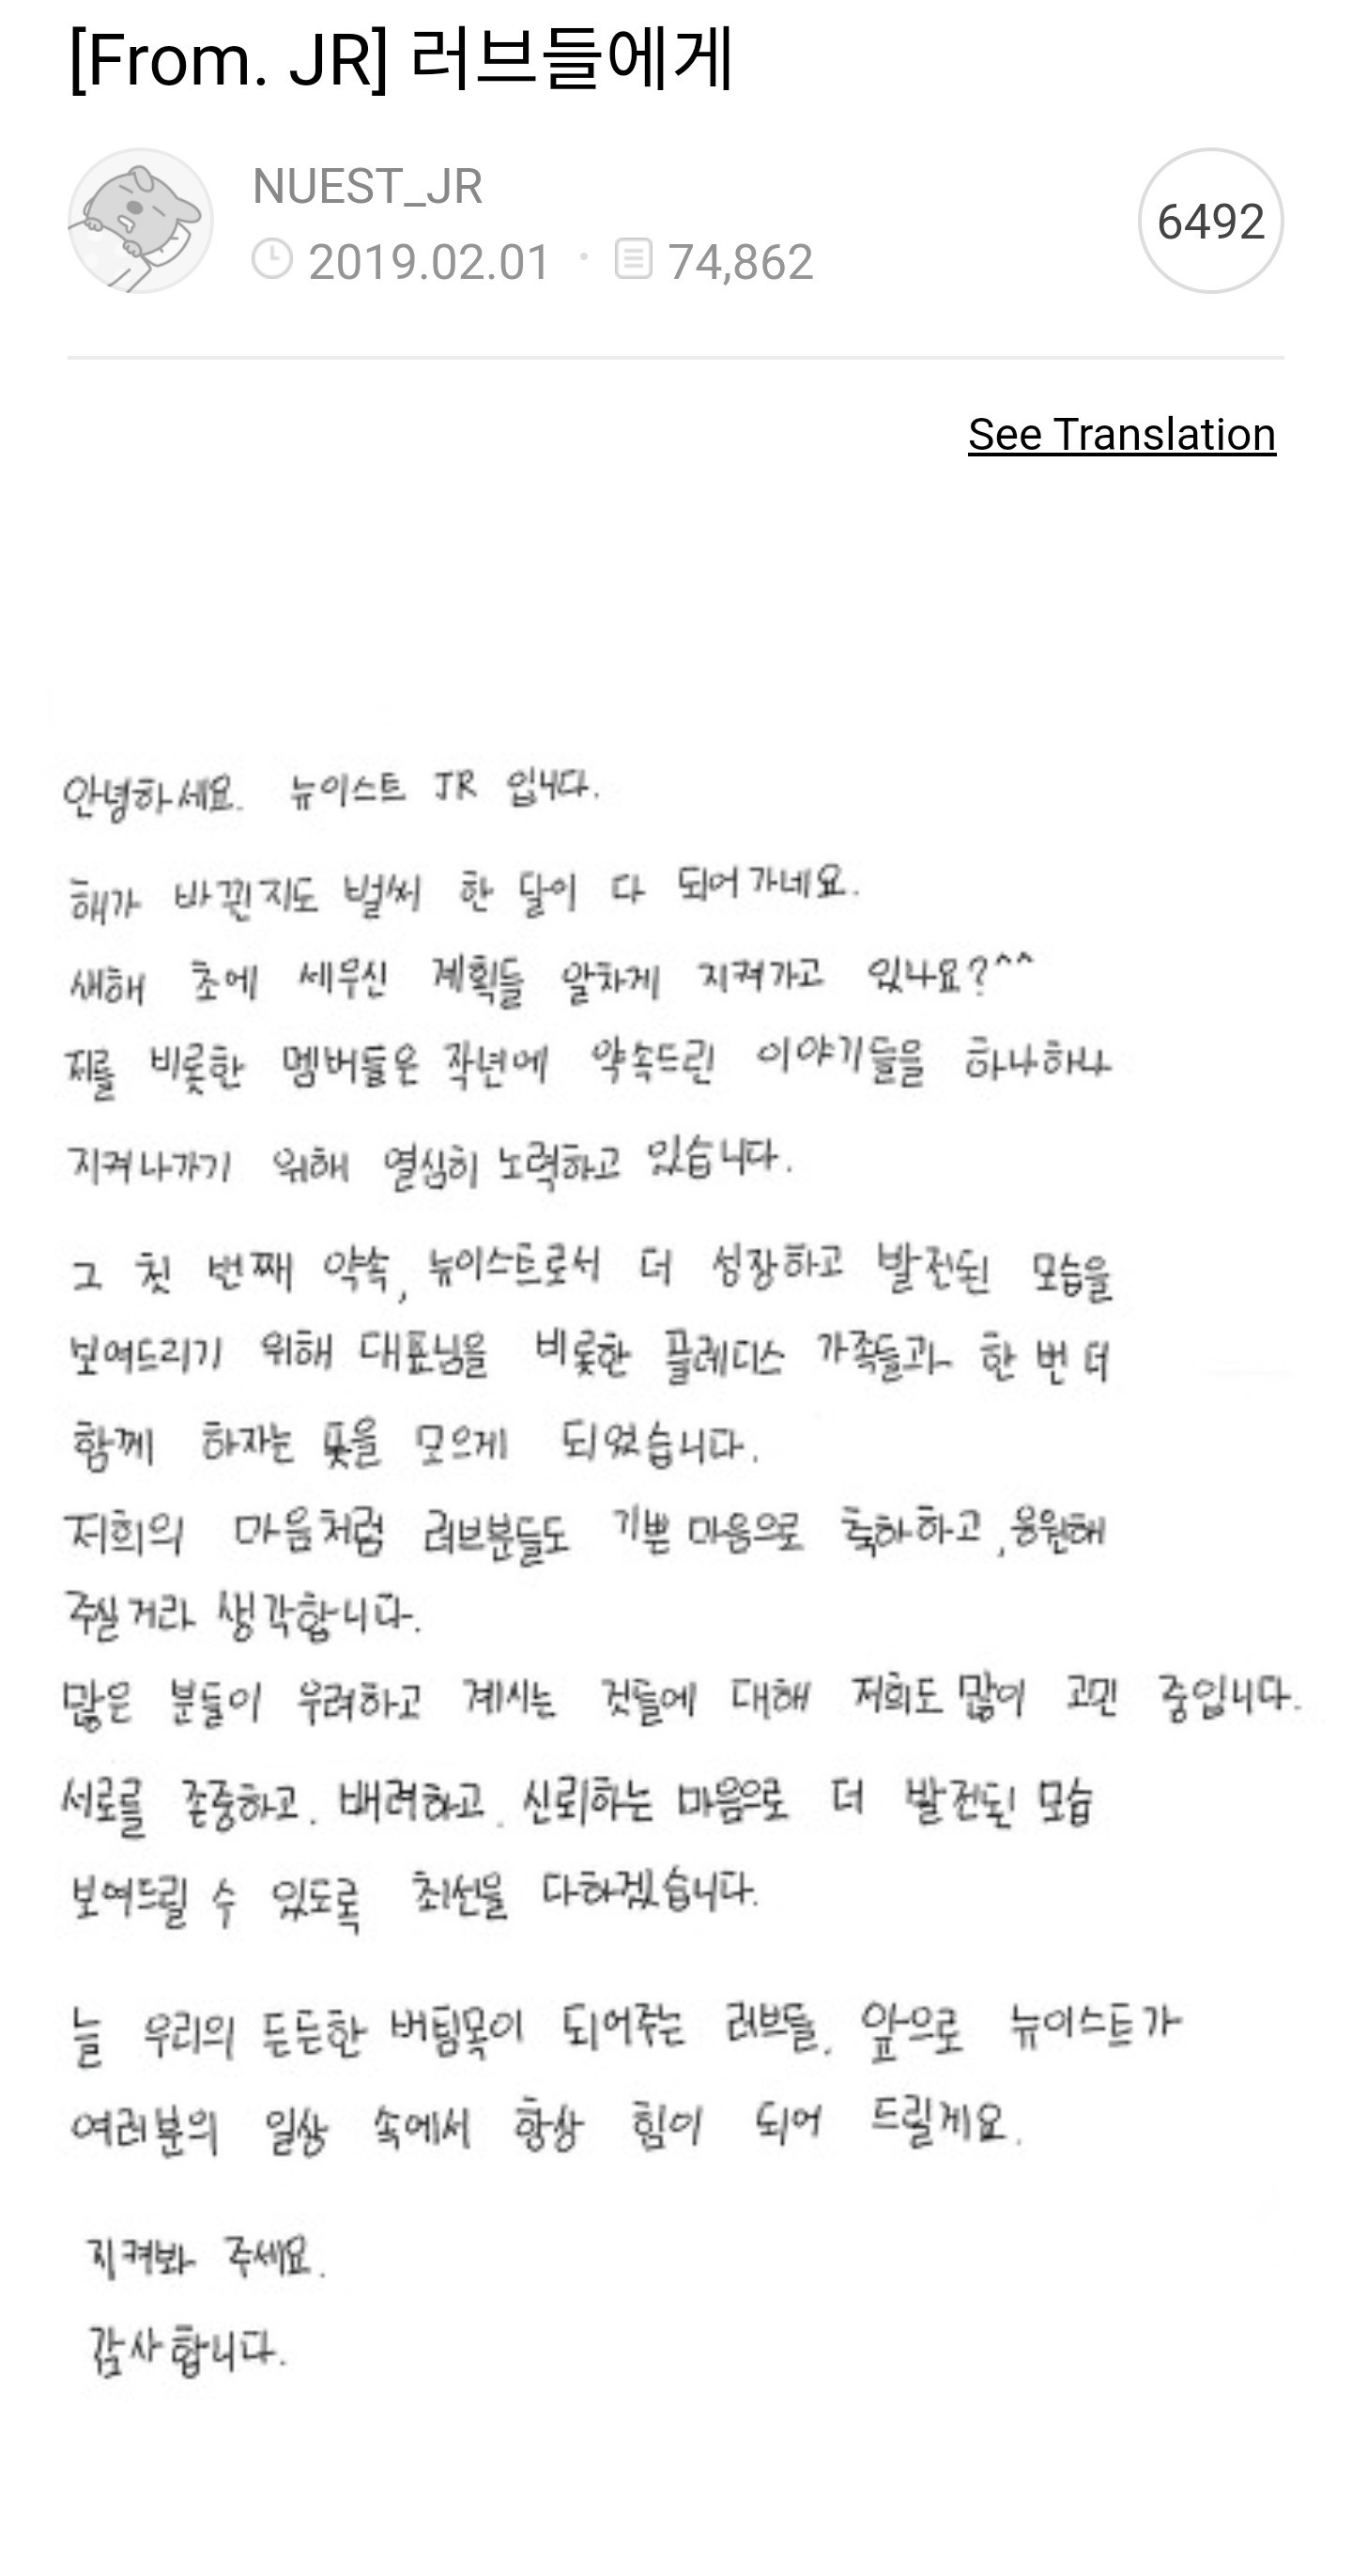 [From. JR] 러브들에게
NUEST_JR
6492
2019.02.01 · 74,862
See Translation
안녕하세요. 뉴이스트 JR 입니다.
해가 바뀐지도 벌써 한 달이 다 되어가네요.
새해 초에 세우신 계획들 알차게 지켜가고 있나요?^^
저를 비롯한 멤버들은 작년에 약속드린 이야기들을 하나하나
지켜나가기 위해 열심히 노력하고 있습니다.
그 첫 번째 약속, 뉴이스트로서 더 성장하고 발전된 모습을
보여드리기 위해 대표님을 비롯한 플레디스 가족들과 한 번 더
함께 하자는 뜻을 모으게 되었습니다.
저희의 마음처럼 러브분들도 기쁜 마음으로 축하하고, 응원해
주실거라 생각합니다.
많은 분들이 우려하고 계시는 것들에 대해 저희도 많이 고민 중입니다.
서로를 존중하고. 배려하고. 신뢰하는 마음으로 더 발전된 모습
보여드릴 수 있도록 최선을 다하겠습니다.
늘 우리의 든든한 버팀목이 되어주는 러브들. 앞으로 뉴이스트가
여러분의 일상 속에서 항상 힘이 되어 드릴게요.
지켜봐 주세요.
감사합니다.